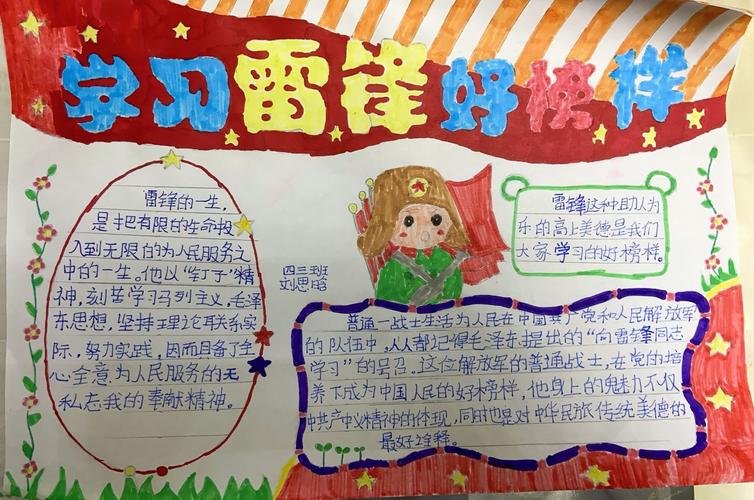 学习雷锋好榜样
雷锋的一生,
是把有限的生命投
入到无限的为人民服务之
中的一生。他以“钉子”精
神,刻苦学习马列主义,毛泽
东思想,坚持理论联系实
际,努力实践,因而具备了全
心全意为人民服务的无
私忘我的奉献精神。
四三班
刘思晗
雷锋这种助人为
乐的高上美德是我们
大家学习的好榜样。
普通一战士生活为人民在中国共产党和人民解放军
的队伍中,人人都记得毛泽东提出的“向雷锋同志
学习”的号召。这位解放军的普通战士,在党的培
养下成为中国人民的好榜样,他身上的魅力不仅
中共产中义精神的体现,同时也是对中华民族传统美德的
最好诠释。